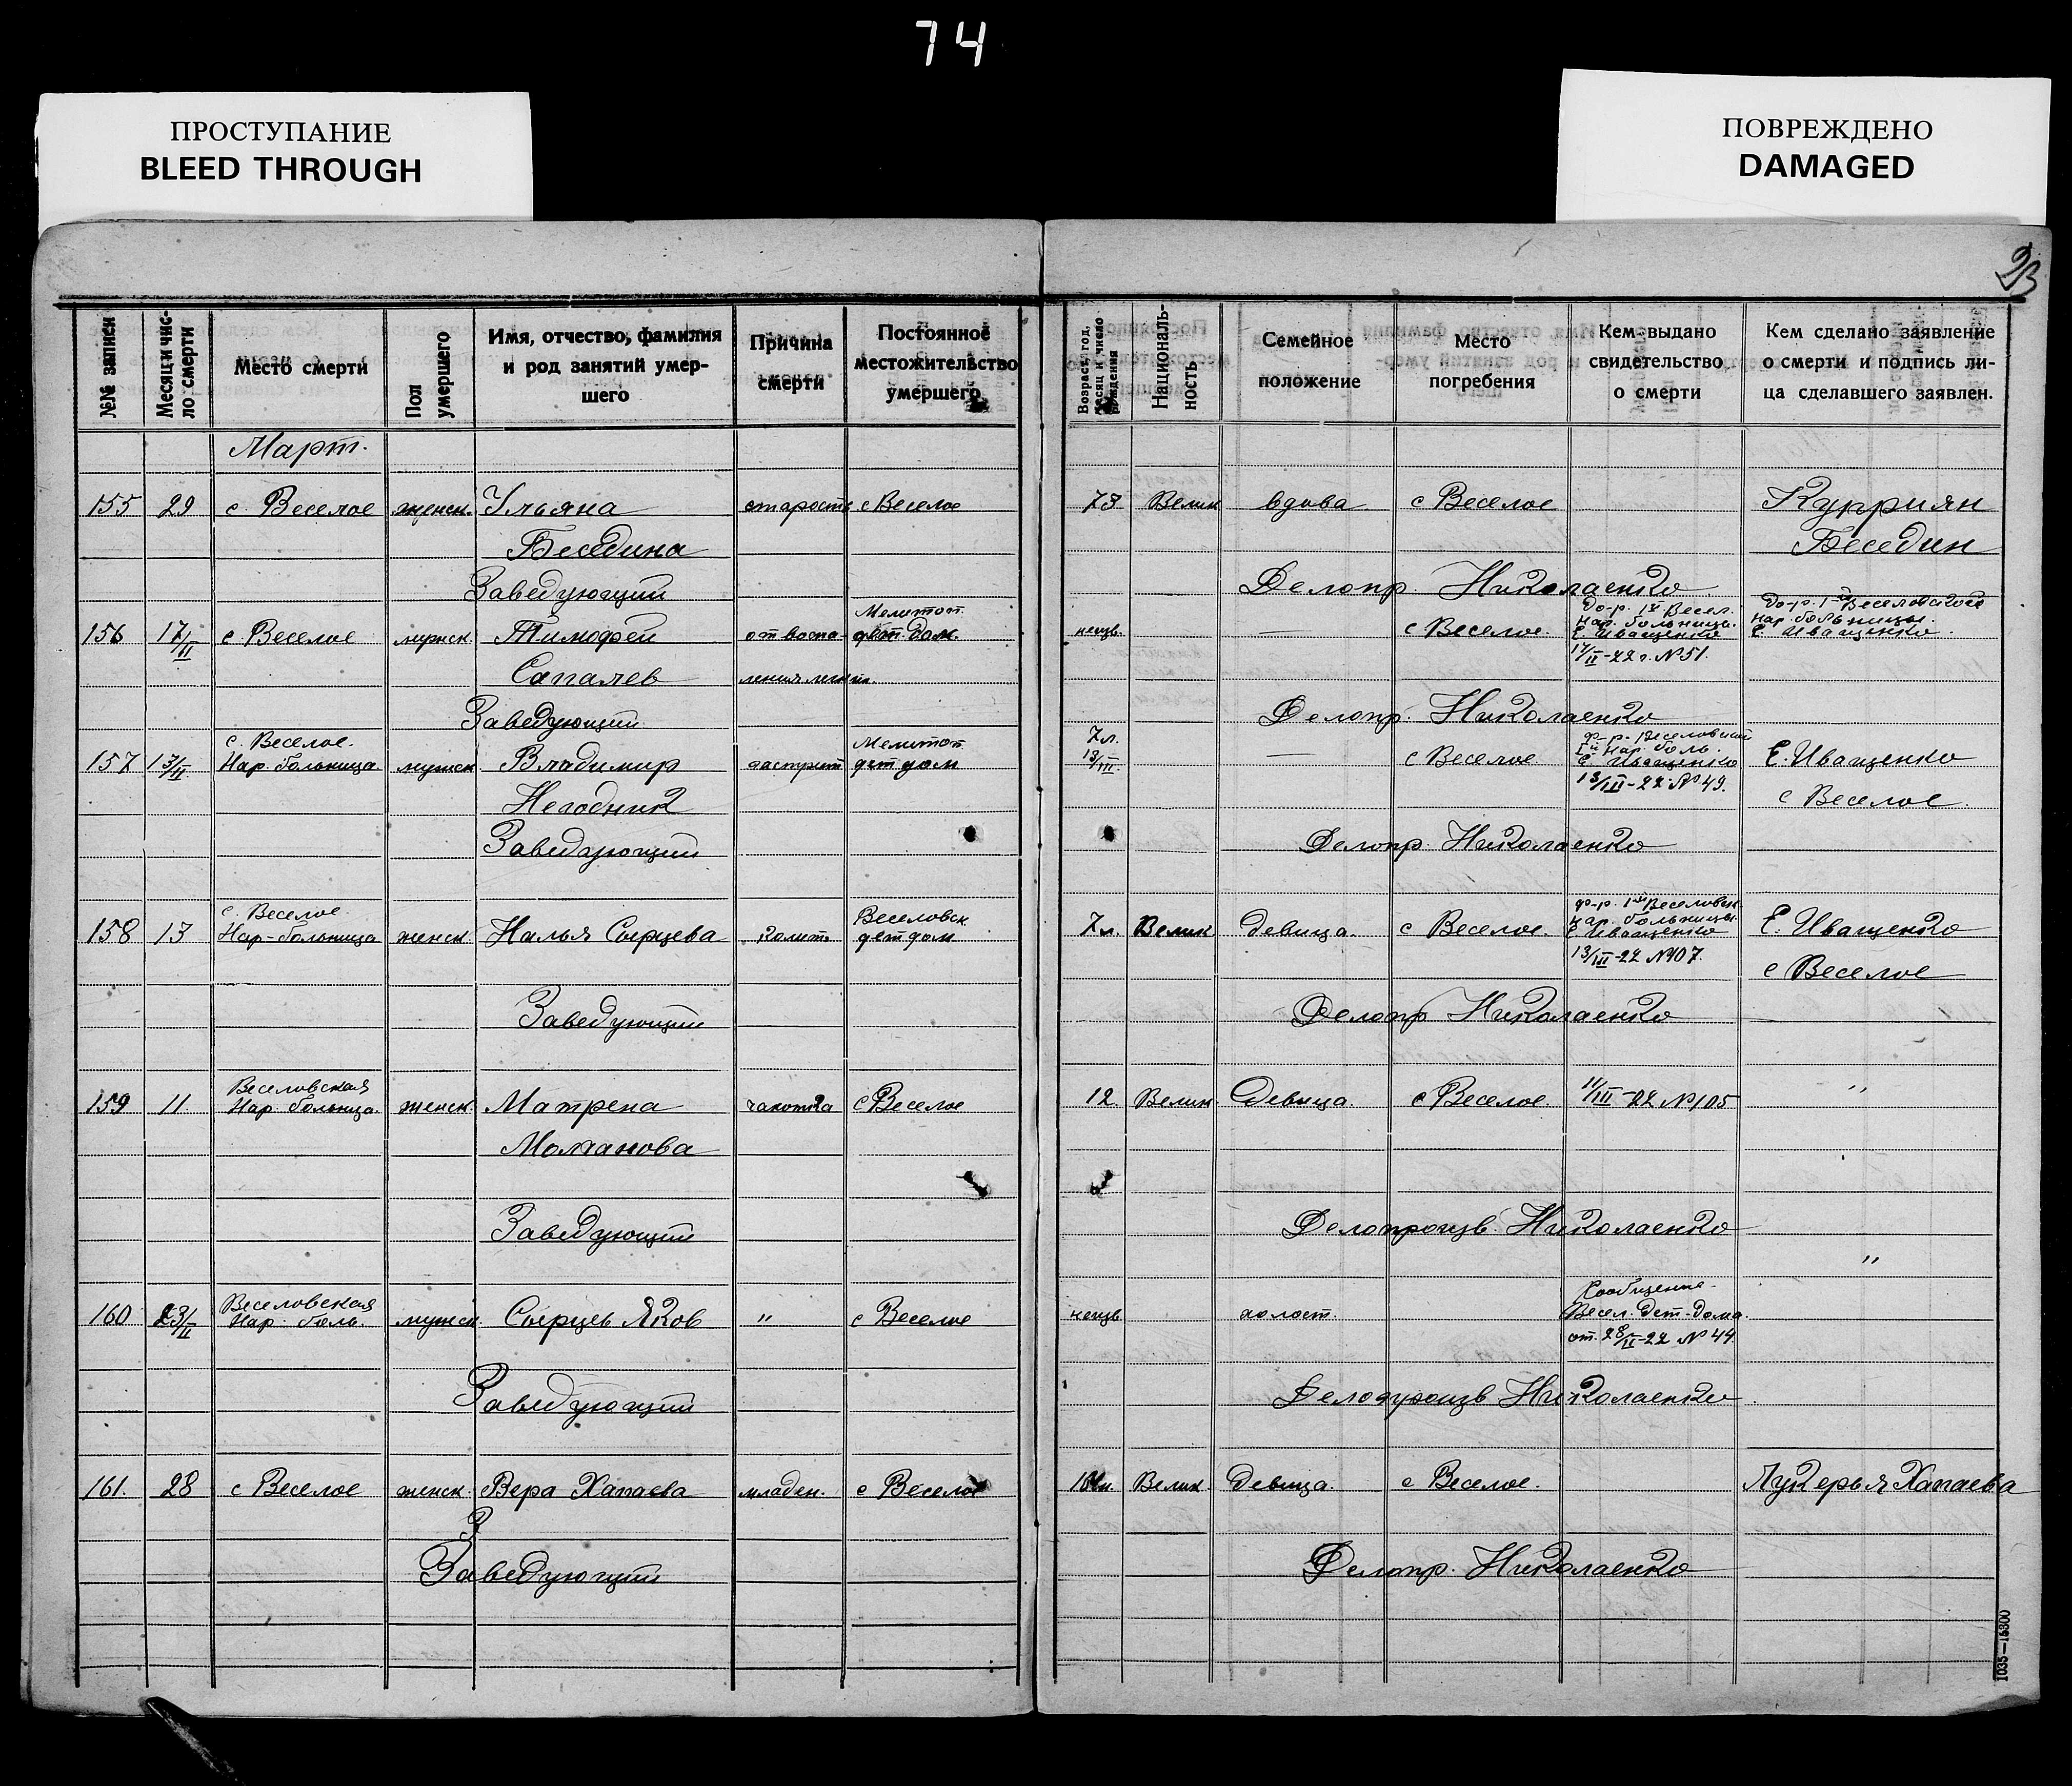 74
ПРОСТУПАНИЕ
BLEED THROUGH
ПОВРЕЖДЕНО
DAMAGED
23
№№ записи
Месяц и чис-
ло смерти
Место смерти
Пол
умершего
Имя, отчество, фамилия
и род занятий умер-
шего
Причина
смерти
Постоянное
местожительство
умершего
Возраст, год,
месяц и число
рождения
Националь-
ность
Семейное
положение
Место
погребения
Кем выдано
свидетельство
о смерти
Кем сделано заявление
о смерти и подпись ли-
ца сделавшего заявлен.
Март.
155 29 с. Веселое женск. Ульяна старость с Веселое 73 Велик вдова с Веселое Куприян
Беседина Беседин
Заведующий Делопр. Николаенко
156 17/II с Веселое мужск. Тимофей от воспа- Мелитоп. дет. дом. неизв. — с Веселое. До-р. 1й Весел. Нар. больницы. Е. Иващенко До-р. 1й Веселовской Нар. больницы. Е. Иващенко.
17/II-22 г. №51.
Сапалев ления легких.
Заведующий Делопр. Николаенко
157 13/II с. Веселое. Нар. больница. мужск Владимир гастрит Мелитоп. дет дом 7л. 13/III — с Веселое Веселовской Нар. боль. Е. Иващенко Е. Иващенко
13/III-22 №49.
Негодник с Веселое.
Заведующий Делопр. Николаенко
158 13 с. Веселое. Нар-больница женск Сырцева колит Веселовск. дет дом. 7л. Велик девица. с Веселое. 1й Веселовск. Нар. больницы Е. Иващенко Е. Иващенко
13/III-22 №107. с Веселое
Заведующий Делопр Николаенко
159 11. Веселовская Нар. больница. женск Матрена чахотка с Веселое 12. Велик. Девица. с Веселое. 11/III-22 №105 "
Молчанова
Заведующий Делопроизв. Николаенко
"
160 23/II Веселовская Нар. боль. мужск Сырцев Яков " с Веселое неизв. холост. Сообщение Весел. Дет-дома
от 28/II-22 №44
Заведующий Делопроизв Николаенко
161. 28 с Веселое женск. Вера Хапаева младен. с Веселое Велик. Девица. с Веселое. Лукерья Хапаева
З
Заведующий Делопр. Николаенко
1035—16800